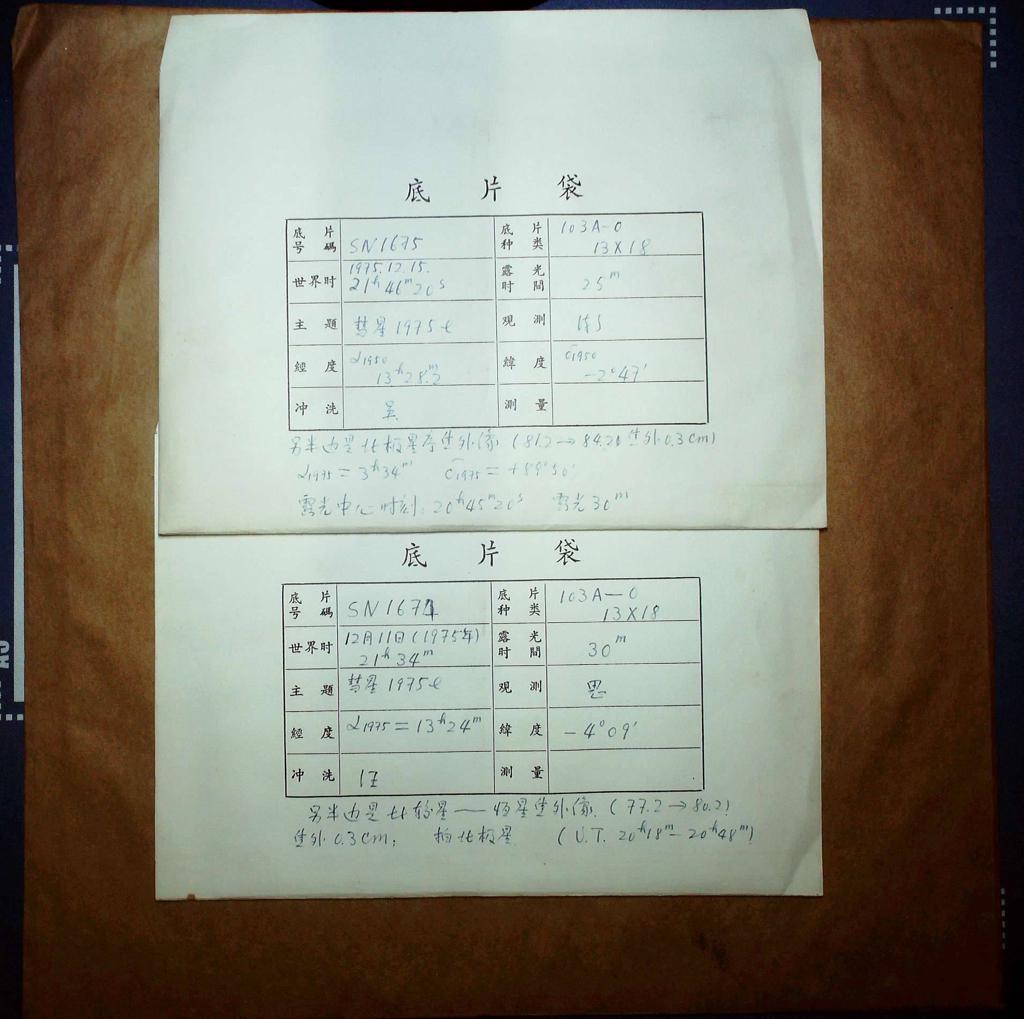 底 片 袋
底片号碼 SN1675 底片种类 103A-O 13X18
世界时 1975.12.15. 21ʰ 46ᵐ 20ˢ 露光时間 25ᵐ
主題 彗星1975 观測
經度 α1950 13ʰ28.2ᵐ 緯度 δ1950 -2°47'
冲洗 吴 測量
另半边是北极星 焦外像 (81.2→84.20 焦外0.3cm)
α1975 = 3ʰ34ᵐ δ1975 = +89°50'
露光中心时刻: 20ʰ45ᵐ20ˢ 露光30ᵐ
底 片 袋
底片号碼 SN1671 底片种类 103A-O 13X18
世界时 12月11日(1975年) 21ʰ 34ᵐ 露光时間 30ᵐ
主題 彗星1975 观測
經度 α1975 = 13ʰ24ᵐ 緯度 -4°09'
冲洗 測量
另半边是比较星——恒星焦外像. (77.2→80.2)
焦外0.3cm; 拍北极星 (U.T. 20ʰ18ᵐ-20ʰ48ᵐ)